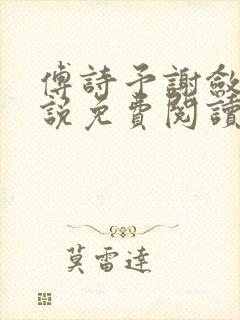 傅詩予謝斂
說免費閱讀
莫雷達